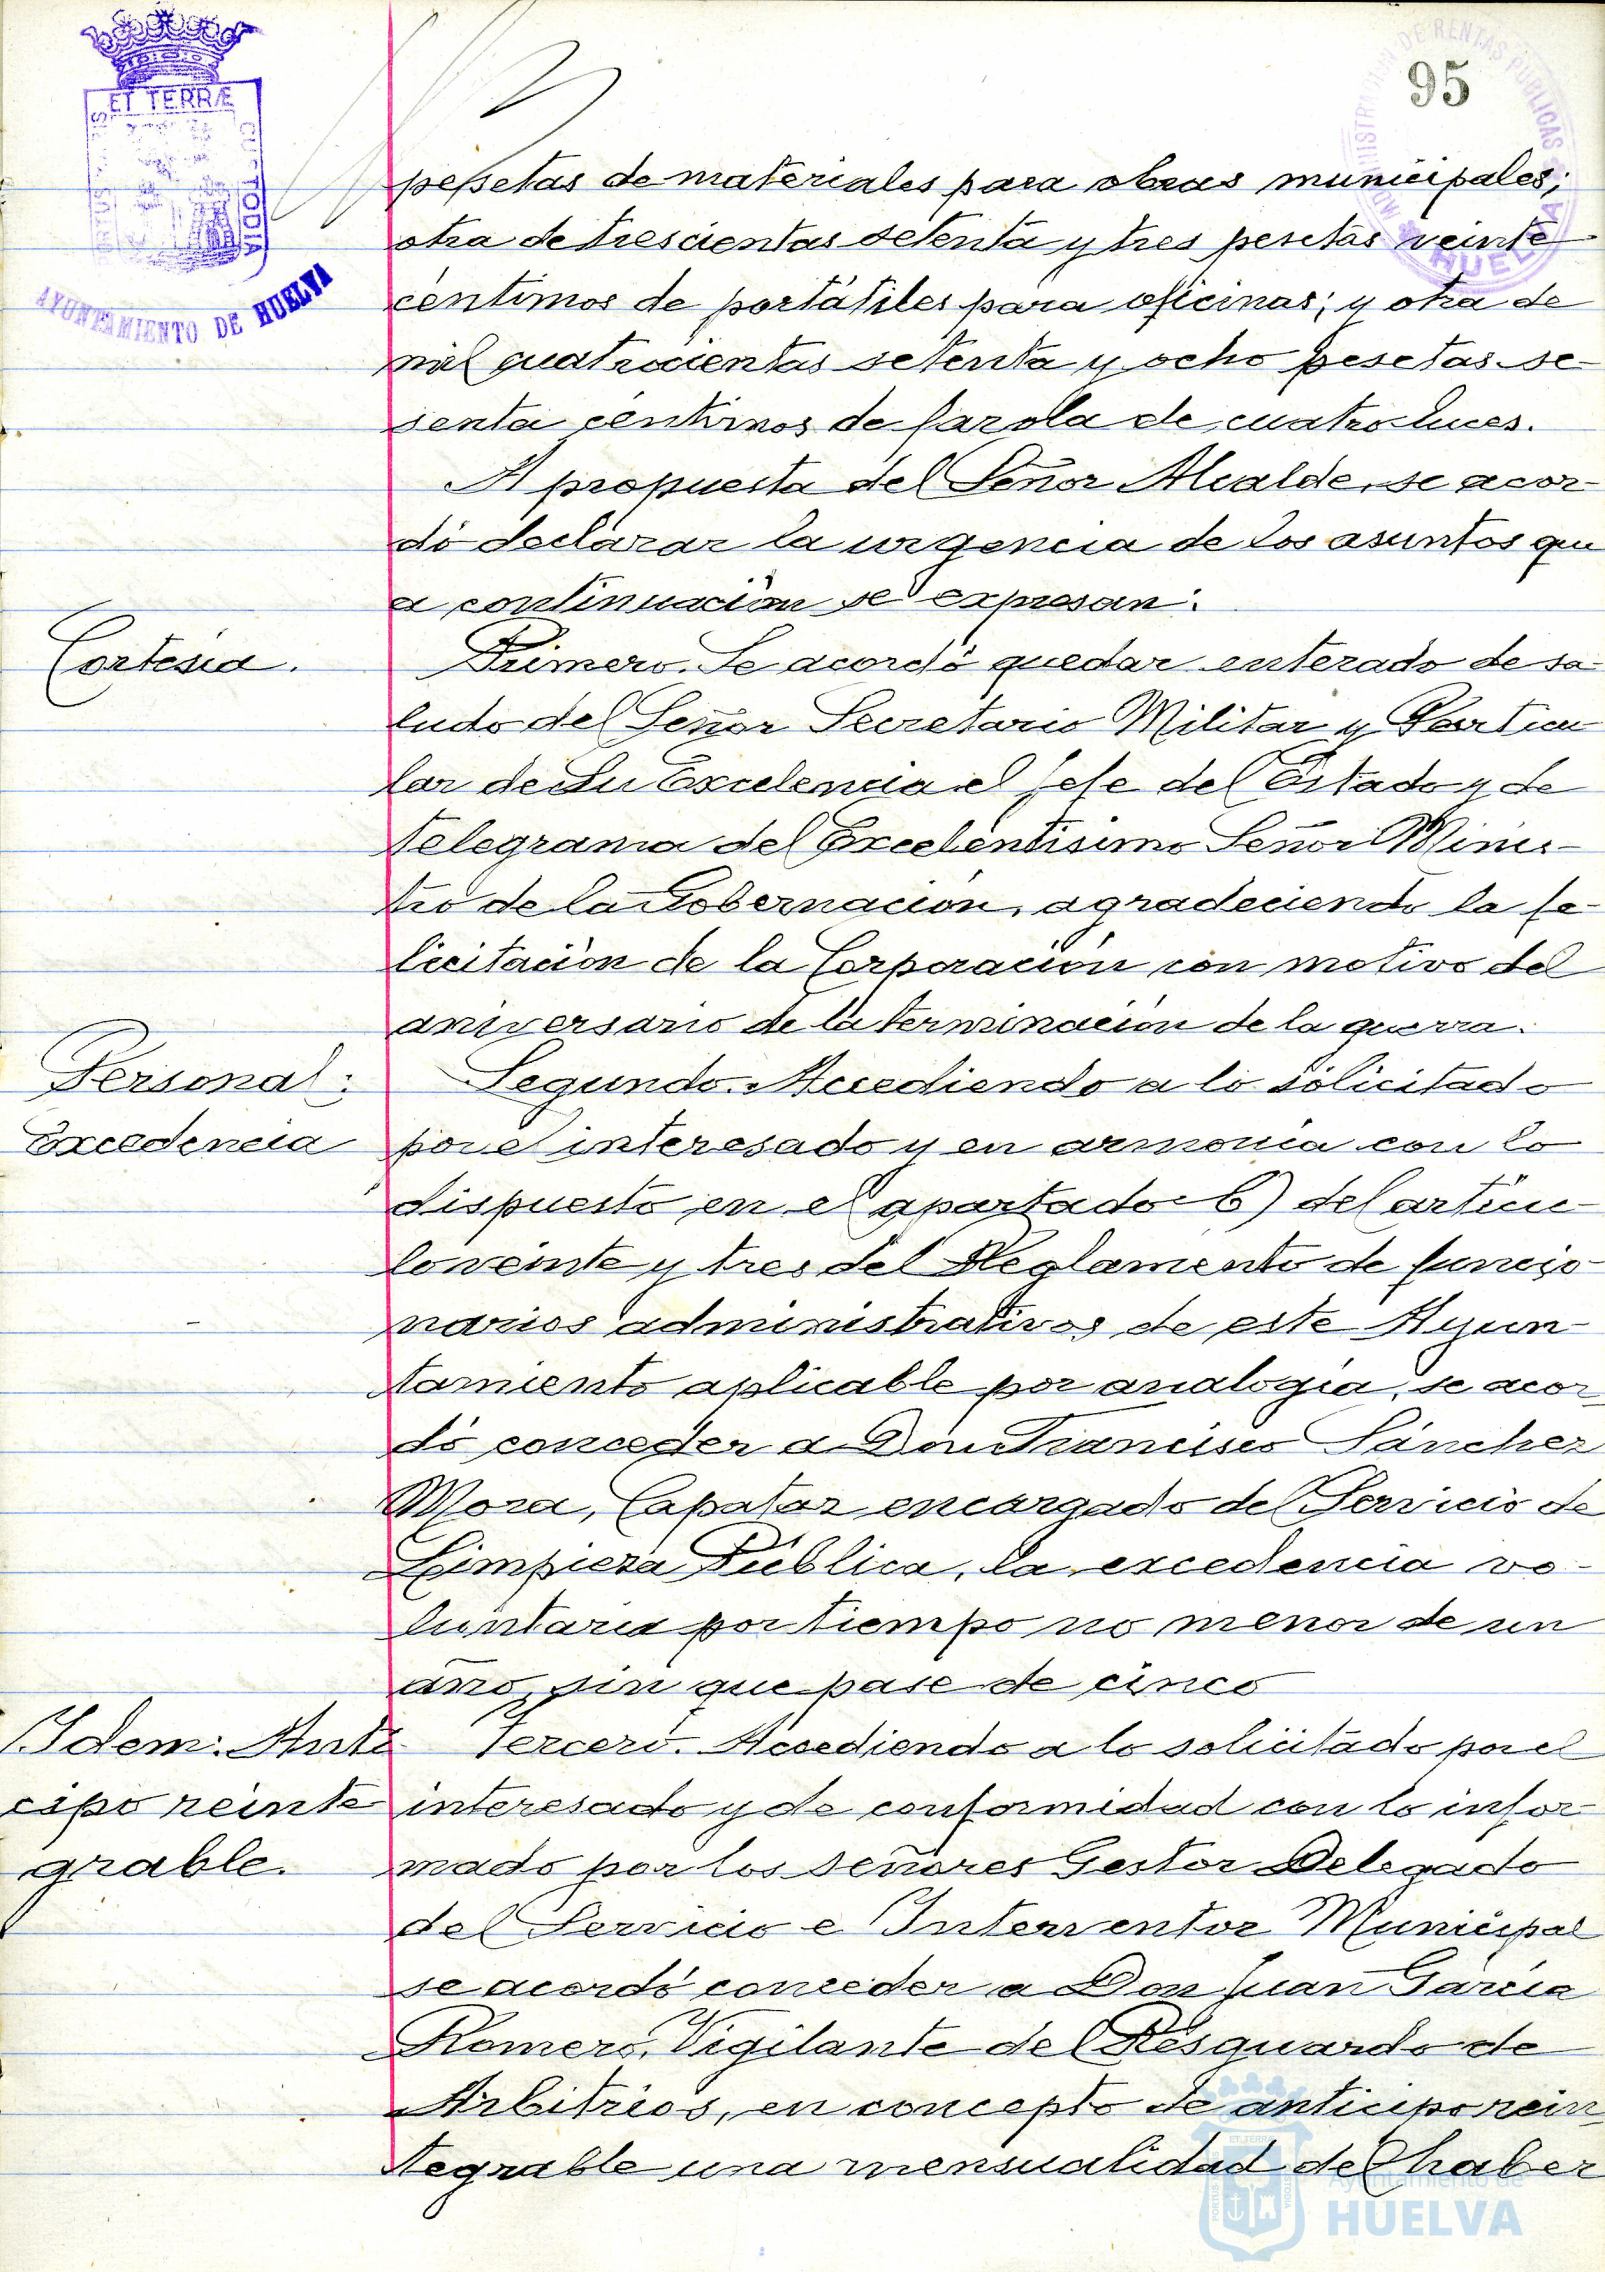 95
ET TERRÆ
AYUNTAMIENTO DE HUELVA
ADMINISTRACION DE RENTAS PUBLICAS
HUELVA
pesetas de materiales para obras municipales;
otra de trescientas setenta y tres pesetas veinte
centimos de portátiles para oficinas; y otra de
mil cuatrocientas setenta y ocho pesetas se-
senta centimos de farola de cuatro luces.
A propuesta del Señor Alcalde, se acor-
dó declarar la urgencia de los asuntos que
a continuación se expresan:
Cortesia.
Primero. Se acordó quedar enterado de sa-
ludo del Señor Secretario Militar y Particu
lar de Su Excelencia el Jefe del Estado y de
telegrama del Excelentisimo Señor Minis-
tro de la Gobernación, agradeciendo la fe-
licitación de la Corporación con motivo del
aniversario de la terminación de la guerra.
Personal:
Excedencia
Segundo. Accediendo a lo solicitado
por el interesado y en armonia con lo
dispuesto en el apartado b) del articu-
lo veinte y tres del Reglamento de funcio-
narios administrativos de este Ayun-
tamiento aplicable por analogia, se acor
dó conceder a Don Francisco Sánchez
Mora, Capataz encargado del Servicio de
Limpieza Pública, la excedencia vo-
luntaria por tiempo no menor de un
año, sin que pase de cinco
Idem: Anti
cipo reinte
grable.
Tercero. Accediendo a lo solicitado por el
interesado y de conformidad con lo infor
mado por los señores Gestor Delegado
del Servicio e Interventor Municipal
se acordó conceder a Don Juan Garcia
Romero, Vigilante del Resguardo de
Arbitrios, en concepto de anticipo rein
tegrable una mensualidad del haber
Ayuntamiento de
HUELVA